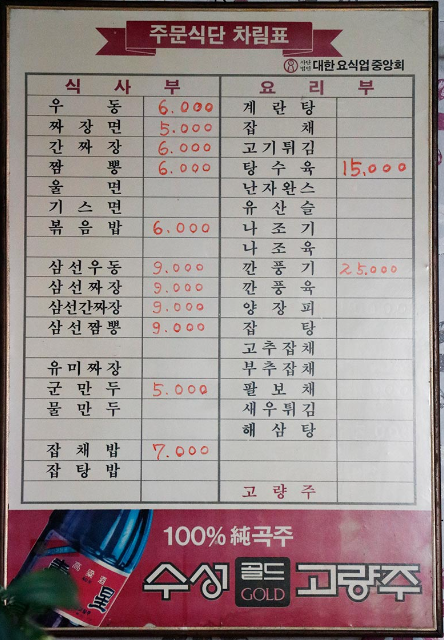 주문식단 차림표
사단법인 대한 요식업 중앙회
식사부
우동 6.000
짜장면 5.000
간짜장 6.000
짬뽕 6.000
울면
기스면
볶음밥 6.000
삼선우동 9.000
삼선짜장 9.000
삼선간짜장 9.000
삼선짬뽕 9.000
유미짜장
군만두 5.000
물만두
잡채밥 7.000
잡탕밥
요리부
계란탕
잡채
고기튀김
탕수육 15,000
난자완스
유산슬
나조기
나조육
깐풍기 25.000
깐풍육
양장피
잡탕
고추잡채
부추잡채
팔보채
새우튀김
해삼탕
고량주
100% 純곡주
수성 골드 GOLD 고량주
高粱酒
星